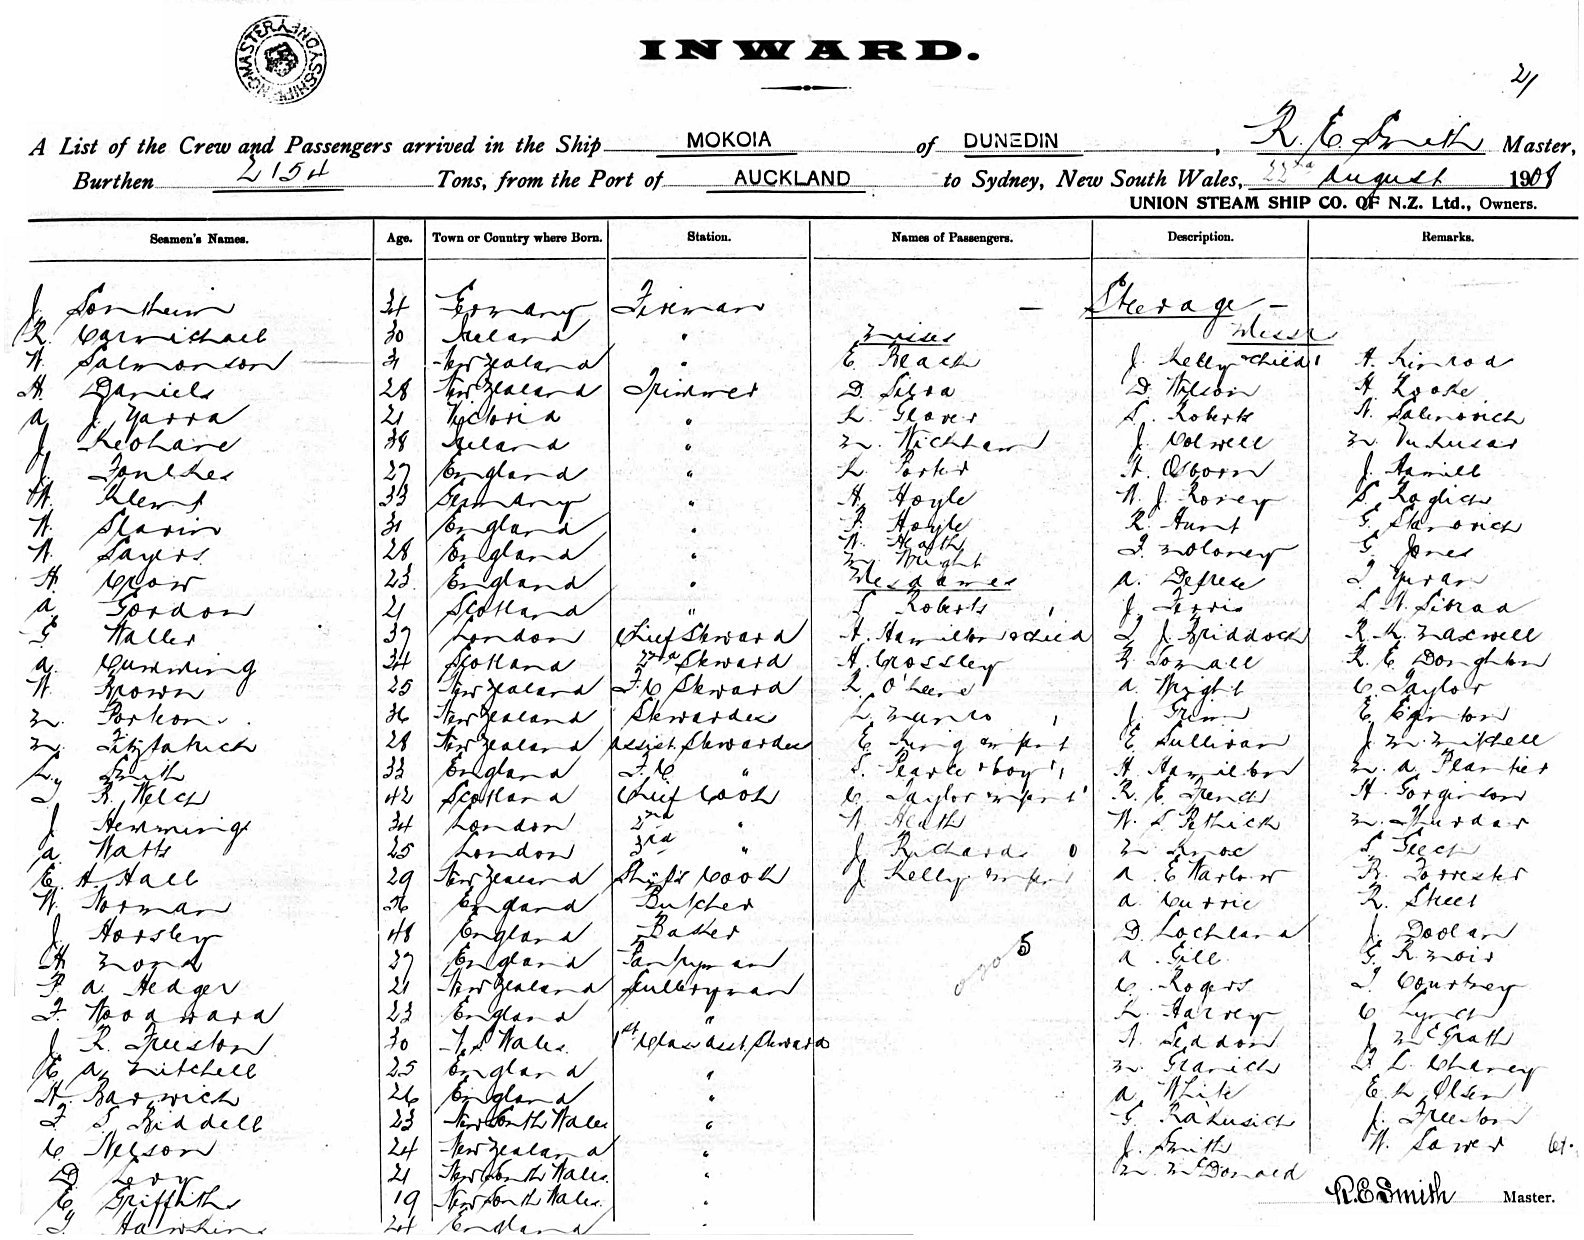 SHIPPING MASTER SYDNEY
INWARD.
21
A List of the Crew and Passengers arrived in the Ship MOKOIA of DUNEDIN, R. E. Smith Master,
Burthen 2154 Tons, from the Port of AUCKLAND to Sydney, New South Wales, 22nd August 1908
UNION STEAM SHIP CO. OF N.Z. Ltd., Owners.
Seamen's Names. Age. Town or Country where Born. Station. Names of Passengers. Description. Remarks.
J. Sontheim 34 Germany Fireman — Steerage —
R. Carmichael 30 Ireland " Misses Messrs
W. Salmonson 31 New Zealand " E. Beach J. Kelly & child H. Kinrod
H. Daniels 28 New Zealand Trimmer D. Silva D. Wilson H. Rooke
A. J. Yarra 21 Victoria " L. Glover S. Roberts N. Salinovich
J. Keohane 38 Ireland " M. Wickham J. Colwell M.
J. Foulkes 27 England " L. Porter H. Osborn J. Hamill
W. Klemt 33 Germany " H. Hoyle W. J. Roney S. Raglich
W. Slavin 31 England " F. Hoyle R. Hunt G. Starovich
W. Sayers 28 England " W. Heath T. Moloney G. Jones
H. Crow 23 England " M. Wright
Mesdames A. Defrese T.
A. Gordon 21 Scotland " S. Roberts J. Ferris S. N.
G. Waller 37 London Chief Steward H. Hamilton & child T. J. Briddock R. K. Maxwell
A. Cumming 34 Scotland 2nd Steward H. Crossley R. Somall R. E. Doughton
W. Brown 25 New Zealand F. C. Steward R. O'Keene A. Wright C. Taylor
M. Porteon 36 New Zealand Stewardess L. Munro J. Grinn E. Eginton
M. Fitzpatrick 28 New Zealand Assist. Stewardess E. King infant E. Sullivan J. M. Mitchell
L. Smith 33 England F. C. " S. Pearce & boy H. Hamilton M. A. Plantier
T. R. Welch 42 Scotland Chief Cook C. Taylor infant R. E. French H. Gorginson
J. Hemmings 34 London 2nd " W. Heath W. S. Pethick M.
A. Watts 25 London 3rd " J. Richards M. Knoe S. Geech
E. H. Hall 29 New Zealand Ship's Cook J. Kelly infant A. E. Warlow R. Forrester
W. Norman 36 England Butcher A. Currie R. Skeet
J. Horsley 48 England Baker D. Lochland J. Doolan
H. Mond 27 England Pantryman 5 A. Gill G. R. Moir
F. A. Hedger 21 New Zealand Sculleryman C. Rogers T. Courtney
F. Woodward 23 England " L. Harvey C. Lynch
J. R. Freeston 30 N. S. Wales 1st Class Asst. Steward N. Seddon J. McGrath
E. A. Mitchell 25 England " M. Granich F. L. Chaney
H. Barwich 26 England " A. White E. L. Olsen
F. S. Biddell 23 New South Wales " G. Rakusich J. Freeston
C. Nelson 24 New Zealand " J. Smith W. Sawer
D. Levy 21 New South Wales " M. McDonald
E. Griffiths 19 New South Wales " R. E. Smith Master.
T. Hawkins 24 England "